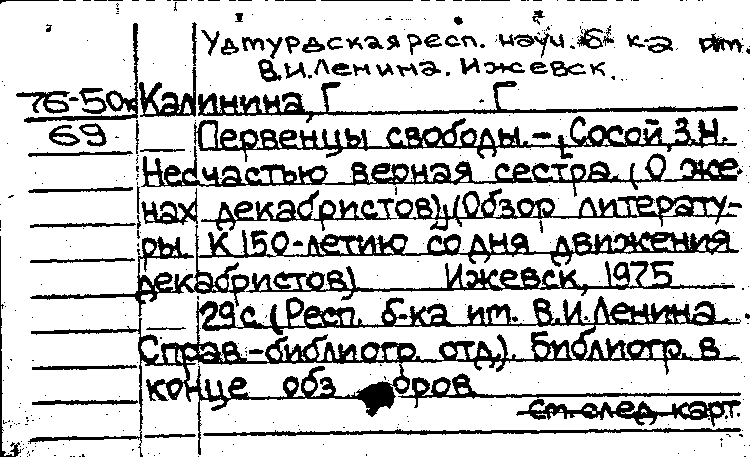 Удмуртская респ. науч. б-ка им.
В.И.Ленина. Ижевск.
76-50к Калинина, Г Г
69 Первенцы свободы. - Сосой, З.Н.
Несчастью верная сестра. (О же-
нах декабристов), (Обзор литерату-
ры. К 150-летию со дня движения
декабристов) Ижевск, 1975
29 с. (Респ. б-ка им. В.И.Ленина.
Справ.-библиогр. отд.). Библиогр. в
конце обз оров
См. след. карт.